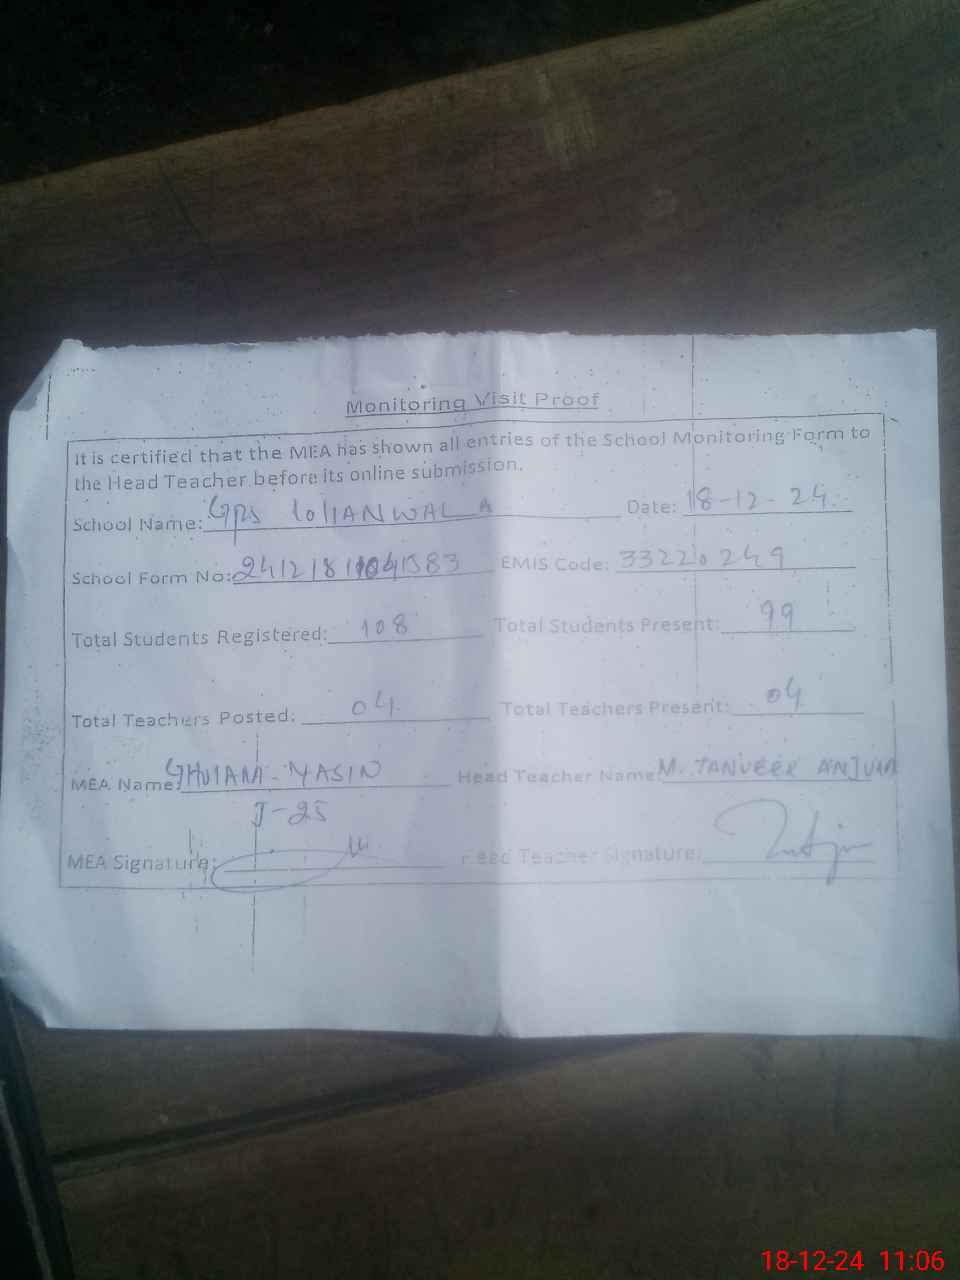 Monitoring Visit Proof
It is certified that the MEA has shown all entries of the School Monitoring Form to
the Head Teacher before its online submission.
School Name: GPS LOLIANWALA Date: 18-12-24
School Form No: EMIS Code: 33220249
Total Students Registered: 108 Total Students Present: 99
Total Teachers Posted: 04 Total Teachers Present: 04
MEA Name: GHULAM YASIN Head Teacher Name: M. TANVEER ANJUM
J-25
MEA Signature: Head Teacher Signature:
18-12-24 11:06